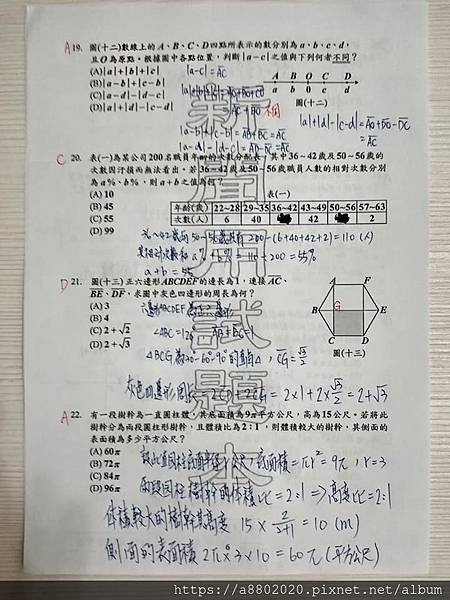 A 19. 圖(十二)數線上的A、B、C、D四點所表示的數分別為a、b、c、d,
且O為原點。根據圖中各點位置,判斷|a-c|之值與下列何者不同?
(A)|a|+|b|+|c| |a-c|=AC
(B)|a-b|+|c-b|
(C)|a-d|-|d-c|
(D)|a|+|d|-|c-d|
A B O C D
a b 0 c d
圖(十二)
不同
|a-b|+|c-b|=AB+BC=AC
|a-d|-|d-c|=AD-DC=AC
|a|+|d|-|c-d|=AO+DO-DC
=AC
C 20. 表(一)為某公司200名職員年齡的次數分配表,其中36~42歲及50~56歲的
次數因汙損而無法看出。若36~42歲及50~56歲職員人數的相對次數分別
為a%、b%,則a+b之值為何?
(A) 10
(B) 45
(C) 55
(D) 99
表(一)
年齡(歲) 22~28 29~35 36~42 43~49 50~56 57~63
次數(人) 6 40 42 2
200-(6+40+42+2)=110(人)
a%+b%=110÷200=55%
a+b=55
D 21. 圖(十三)正六邊形ABCDEF的邊長為1,連接AC、
BE、DF,求圖中灰色四邊形的周長為何?
(A) 3
(B) 4
(C) 2+√2
(D) 2+√3
A F
B G E
C D
圖(十三)
∠ABC=120° AB=BC=1
△BCG為30°-60°-90°的直角△,CG=√3/2
灰色四邊形周長=2CD+2CG=2×1+2×√3/2=2+√3
A 22. 有一段樹幹為一直圓柱體,其底面積為9π平方公尺,高為15公尺。若將此
樹幹分為兩段圓柱形樹幹,且體積比為2:1,則體積較大的樹幹,其側面的
表面積為多少平方公尺?
(A) 60π
(B) 72π
(C) 84π
(D) 96π
設此直圓柱底面半徑r公尺,底面積=πr²=9π,r=3
兩段圓柱樹幹的體積比=2:1⇒高度比=2:1
體積較大的樹幹其高度 15×2/(2+1)=10(m)
側面的表面積 2π×3×10=60π(平方公尺)
新眉州試題本
https://a8802020.pixnet.net/album